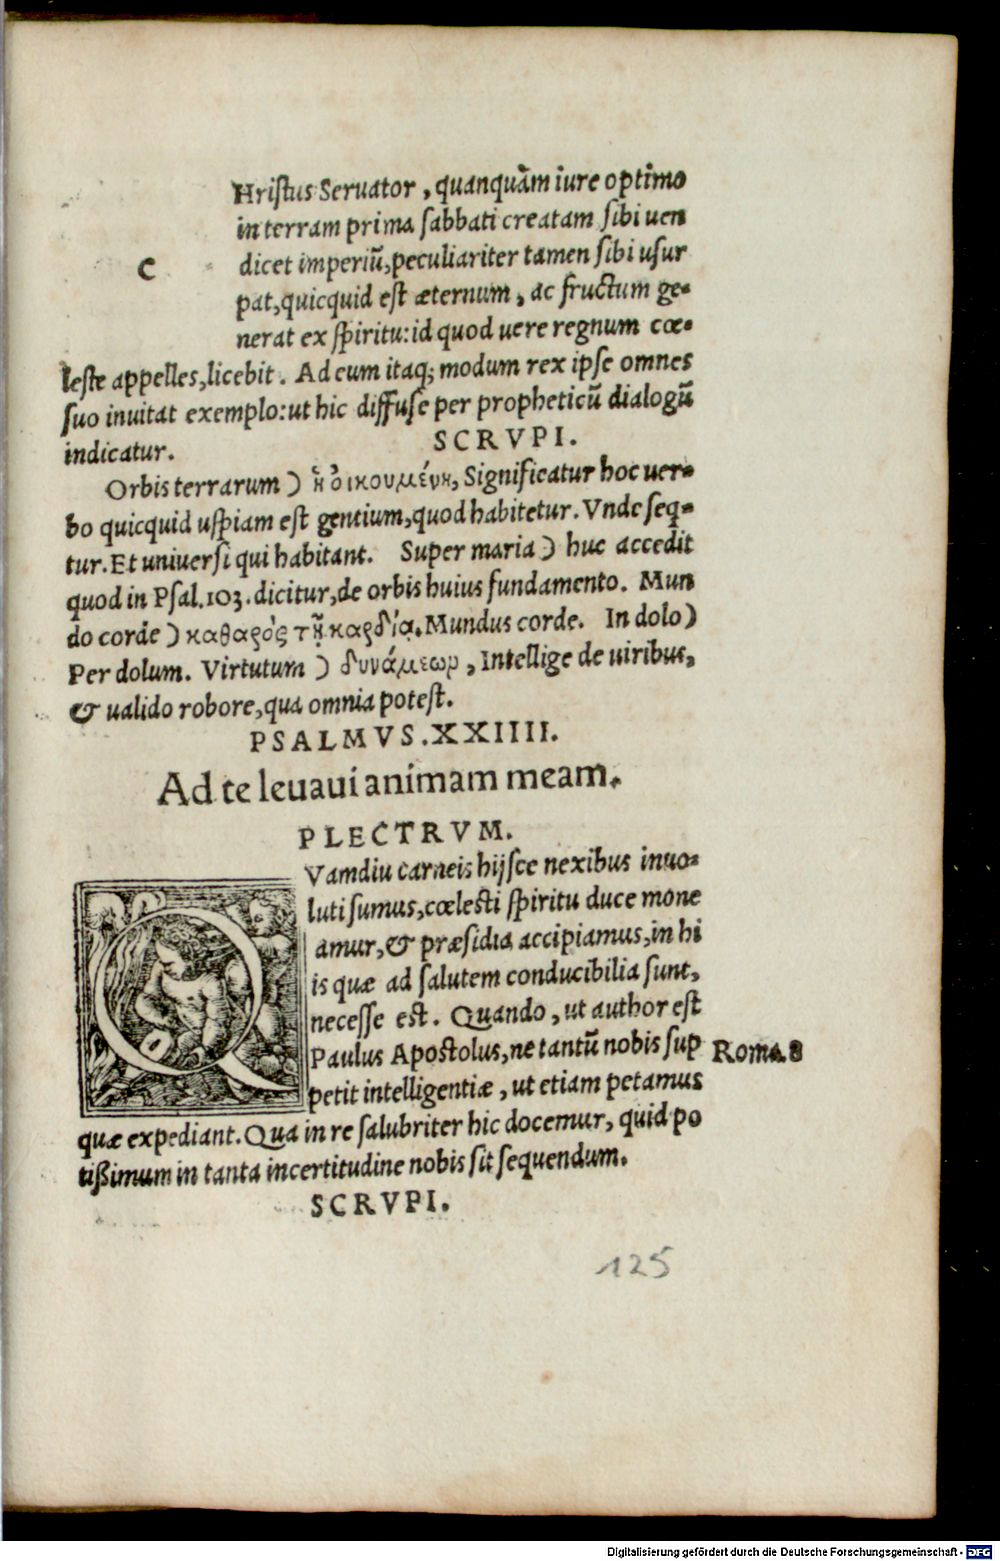 CHristus Seruator, quanquàm iure optimo
in terram prima sabbati creatam sibi uen
dicet imperiũ, peculiariter tamen sibi usur
pat, quicquid est æternum, ac fructum ge-
nerat ex spiritu: id quod uere regnum cœ-
leste appelles, licebit. Ad eum itaq; modum rex ipse omnes
suo inuitat exemplo: ut hic diffuse per propheticũ dialogũ
indicatur. SCRVPI.
Orbis terrarum) ἡ οἰκουμένη, Significatur hoc uer-
bo quicquid uspiam est gentium, quod habitetur. Vnde seq-
tur. Et uniuersi qui habitant. Super maria) huc accedit
quod in Psal. 103. dicitur, de orbis huius fundamento. Mun
do corde) καθαρὸς τῇ καρδίᾳ. Mundus corde. In dolo)
Per dolum. Virtutum) δυνάμεων, Intellige de uiribus,
& ualido robore, qua omnia potest.
PSALMVS. XXIIII.
Ad te leuaui animam meam.
PLECTRVM.
QVamdiu carneis hijsce nexibus inuo-
luti sumus, cœlesti spiritu duce mone
amur, & præsidia accipiamus, in hi
is quæ ad salutem conducibilia sunt,
necesse est. Quando, ut author est
Paulus Apostolus, ne tantũ nobis sup
petit intelligentiæ, ut etiam petamus
Roma. 8
quæ expediant. Qua in re salubriter hic docemur, quid po
tißimum in tanta incertitudine nobis sit sequendum.
SCRVPI.
125
Digitalisierung gefördert durch die Deutsche Forschungsgemeinschaft - DFG